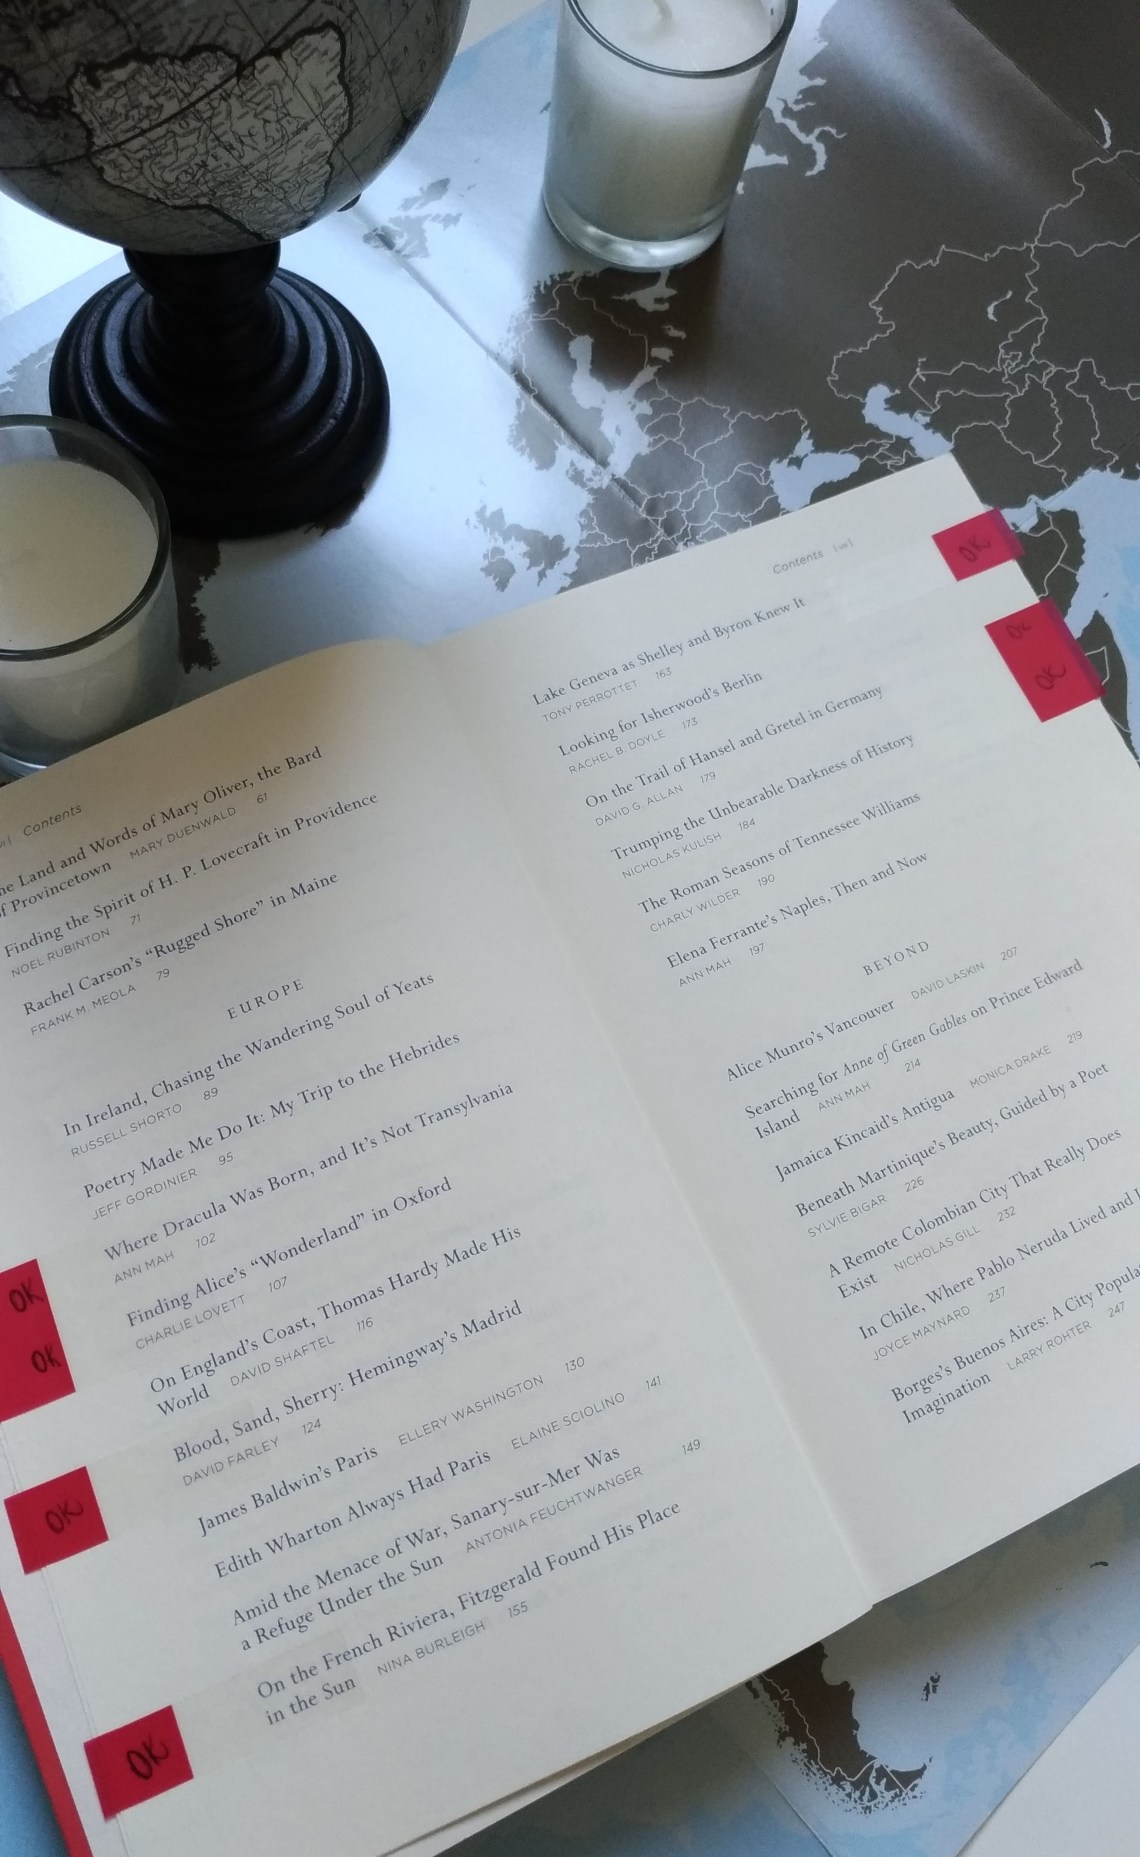 Contents
he Land and Words of Mary Oliver, the Bard
f Provincetown MARY DUENWALD 61
Finding the Spirit of H. P. Lovecraft in Providence
NOEL RUBINTON 71
Rachel Carson's “Rugged Shore” in Maine
FRANK M. MEOLA 79
EUROPE
In Ireland, Chasing the Wandering Soul of Yeats
RUSSELL SHORTO 89
Poetry Made Me Do It: My Trip to the Hebrides
JEFF GORDINIER 95
Where Dracula Was Born, and It's Not Transylvania
ANN MAH 102
Finding Alice's “Wonderland” in Oxford
CHARLIE LOVETT 107
On England's Coast, Thomas Hardy Made His
World DAVID SHAFTEL 116
Blood, Sand, Sherry: Hemingway's Madrid
DAVID FARLEY 124
James Baldwin's Paris ELLERY WASHINGTON 130
Edith Wharton Always Had Paris ELAINE SCIOLINO 141
Amid the Menace of War, Sanary-sur-Mer Was
a Refuge Under the Sun ANTONIA FEUCHTWANGER 149
On the French Riviera, Fitzgerald Found His Place
in the Sun NINA BURLEIGH 155
OK
OK
OK
OK
Contents
Lake Geneva as Shelley and Byron Knew It
TONY PERROTTET 163
Looking for Isherwood's Berlin
RACHEL B. DOYLE 173
On the Trail of Hansel and Gretel in Germany
DAVID G. ALLAN 179
Trumping the Unbearable Darkness of History
NICHOLAS KULISH 184
The Roman Seasons of Tennessee Williams
CHARLY WILDER 190
Elena Ferrante's Naples, Then and Now
ANN MAH 197
BEYOND
Alice Munro's Vancouver DAVID LASKIN 207
Searching for Anne of Green Gables on Prince Edward
Island ANN MAH 214
Jamaica Kincaid's Antigua MONICA DRAKE 219
Beneath Martinique's Beauty, Guided by a Poet
SYLVIE BIGAR 226
A Remote Colombian City That Really Does
Exist NICHOLAS GILL 232
In Chile, Where Pablo Neruda Lived and
JOYCE MAYNARD 237
Borges's Buenos Aires: A City Popula
Imagination LARRY ROHTER 247
OK
OK
OK